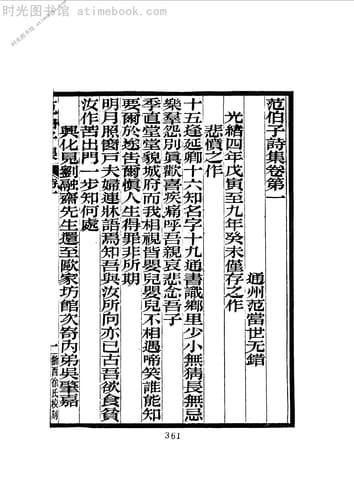 时光图书馆 - atimebook.com
范伯子詩集卷第一
通州范當世无错
光緒四年戊寅至九年癸未僅存之作
悲憤之作
十五逢延卿十六知名字十九通書識鄉里少小無猜長無忌
樂羣怨別眞歡喜疾痛呼吾親哀悲念吾子
季直堂堂貌城府而我相視皆嬰兒嬰兒不相遇啼笑誰能知
要爾於途吿爾愼人生得罪非所期
明月照窗戶夫婦連牀語爲知吾與汝所向亦已古吾欲食貧
汝作苦出門一步知何處
興化見劉融齋先生還至歐家坊館次寄內弟吳肇嘉
一
361
时光图书馆 - atimebook.com